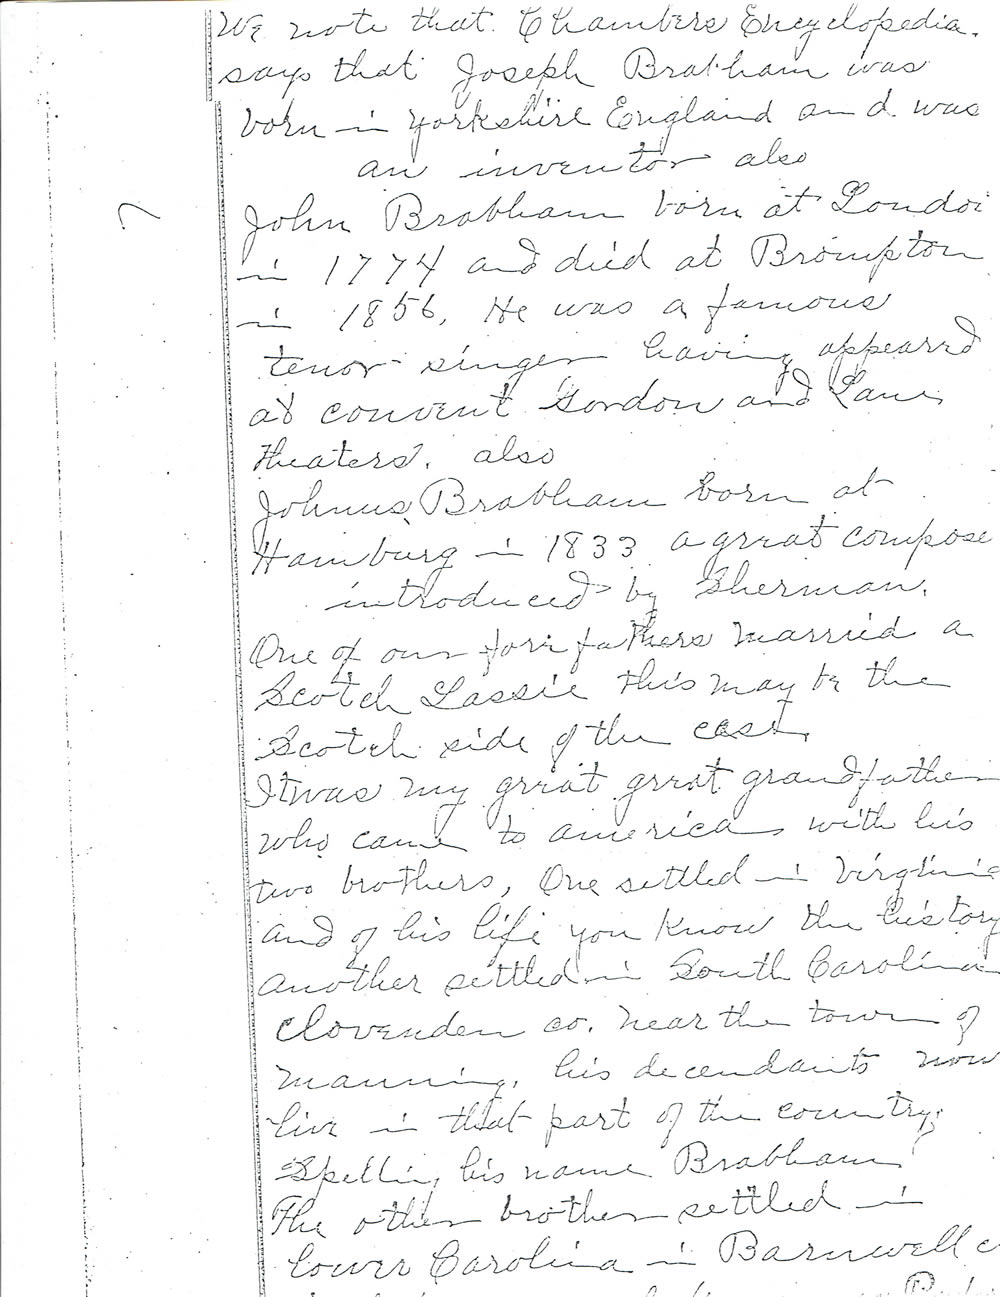 We note that Chambers Encyclopedia.
says that Joseph Brabham was
born in Yorkshire England and was
an inventor also
7
John Brabham born at Londo
in 1774 and died at Brompton
in 1856. He was a famous
tenor singer having appeared
at convent Gordon and Lane
theaters. also
Johnus Brabham born at
Hamburg in 1833 a great compose
introduced by Sherman.
One of our fore fathers married a
Scotch Lassie this may be the
Scotch side of the cast.
It was my great great grandfather
who came to america with his
two brothers, One settled in Virginia
and of his life you know the history
another settled in South Carolina
Clovenden co. near the town of
manning. his decendants now
live in that part of the country,
Spelling his name Brabham.
The other brother settled in
lower Carolina in Barnwell c